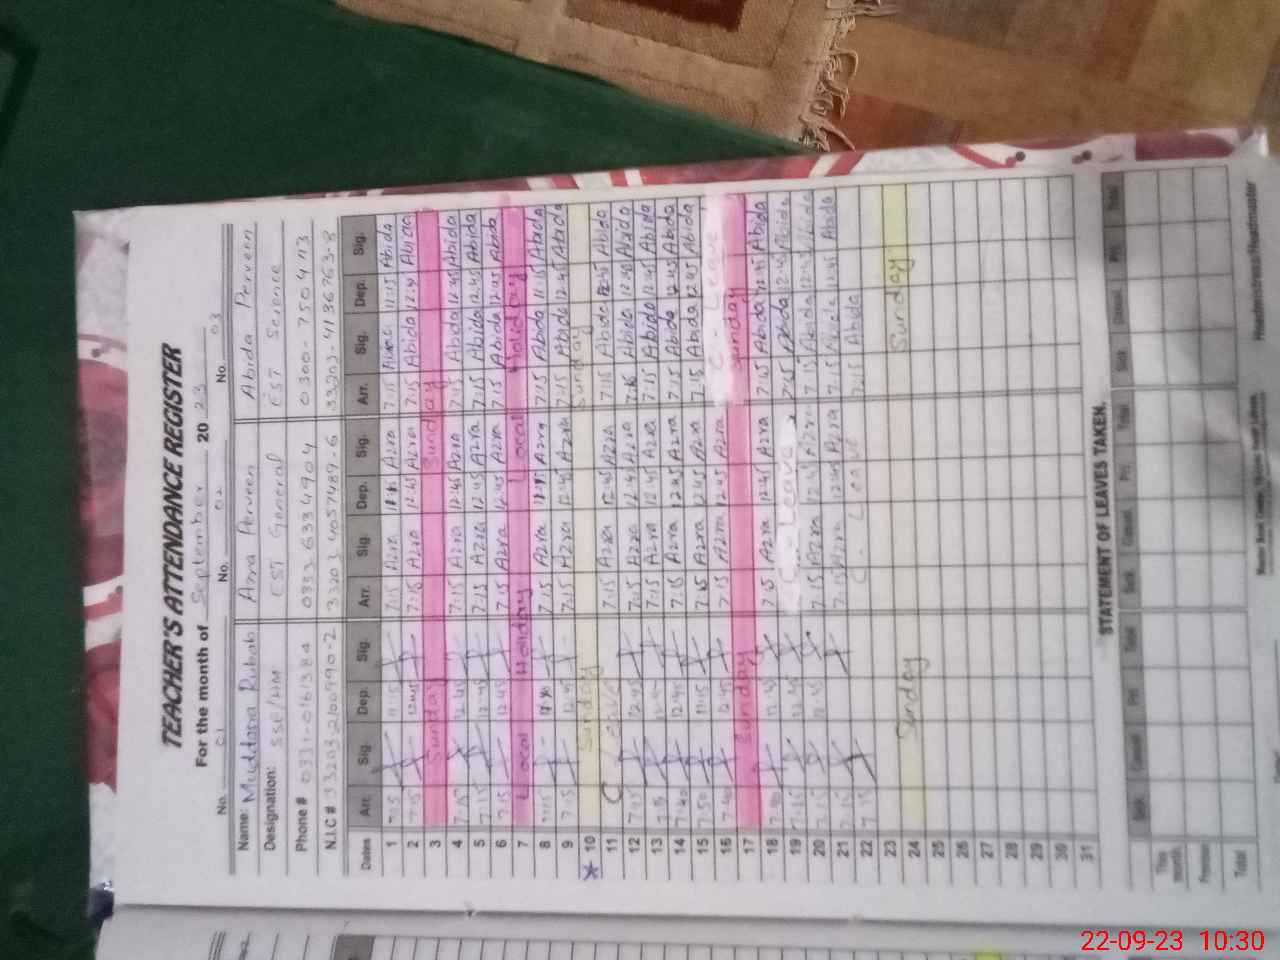 TEACHER'S ATTENDANCE REGISTER
For the month of September 20 23
No. 01 No. 02 No. 03
Name: Muddassa Rubab Azra Perveen Abida Perveen
Designation: SSE/HM EST General EST Science
Phone # 0331-0161384 0332 6334904 0300-7504713
N.I.C #
Dates Arr. Sig. Dep. Sig. Arr. Sig. Dep. Sig. Arr. Sig. Dep. Sig.
1 7:15 11:15 7:15 Azra 11:15 Azra 7:15 Abida 11:15 Abida
2 7:15 12:45 7:15 Azra 12:45 Azra 7:15 Abida 12:45 Abida
3 Sunday Sunday
4 7:15 12:45 7:15 Azra 12:45 Azra 7:15 Abida 12:45 Abida
5 7:15 12:45 7:15 Azra 12:45 Azra 7:15 Abida 12:45 Abida
6 7:15 12:45 7:15 Azra 12:45 Azra 7:15 Abida 12:45 Abida
7 Local Holiday Local Holiday
8 7:15 7:15 Azra 11:15 Azra 7:15 Abida 11:15 Abida
9 7:15 12:45 7:15 Azra 12:45 Azra 7:15 Abida 12:45 Abida
* 10 Sunday Sunday
11 C. Leave 7:15 Azra 12:45 Azra 7:15 Abida 12:45 Abida
12 12:45 7:15 Azra 12:45 Azra 7:15 Abida 12:45 Abida
13 7:15 Azra 12:45 Azra 7:15 Abida 12:45 Abida
14 12:45 7:15 Azra 12:45 Azra 7:15 Abida 12:45 Abida
15 7:15 Azra 12:45 Azra 7:15 Abida 12:45 Abida
16 12:45 7:15 Azra 12:45 Azra C. Leave
17 Sunday Sunday
18 12:45 7:15 Azra 12:45 Azra 7:15 Abida 12:45 Abida
19 7:15 C. Leave 7:15 Abida 12:45 Abida
20 7:15 7:15 Azra 12:45 Azra 7:15 Abida 12:45 Abida
21 7:15 7:15 Azra 12:45 Azra 7:15 Abida 12:45 Abida
22 7:15 C. Leave 7:15 Abida
23
24 Sunday Sunday
25
26
27
28
29
30
31
STATEMENT OF LEAVES TAKEN.
Sick Casual Pri Total Sick Casual Pri Total Sick Casual Pri Total
This month.
Previous
Total
Headmistress/Headmaster
22-09-23 10:30